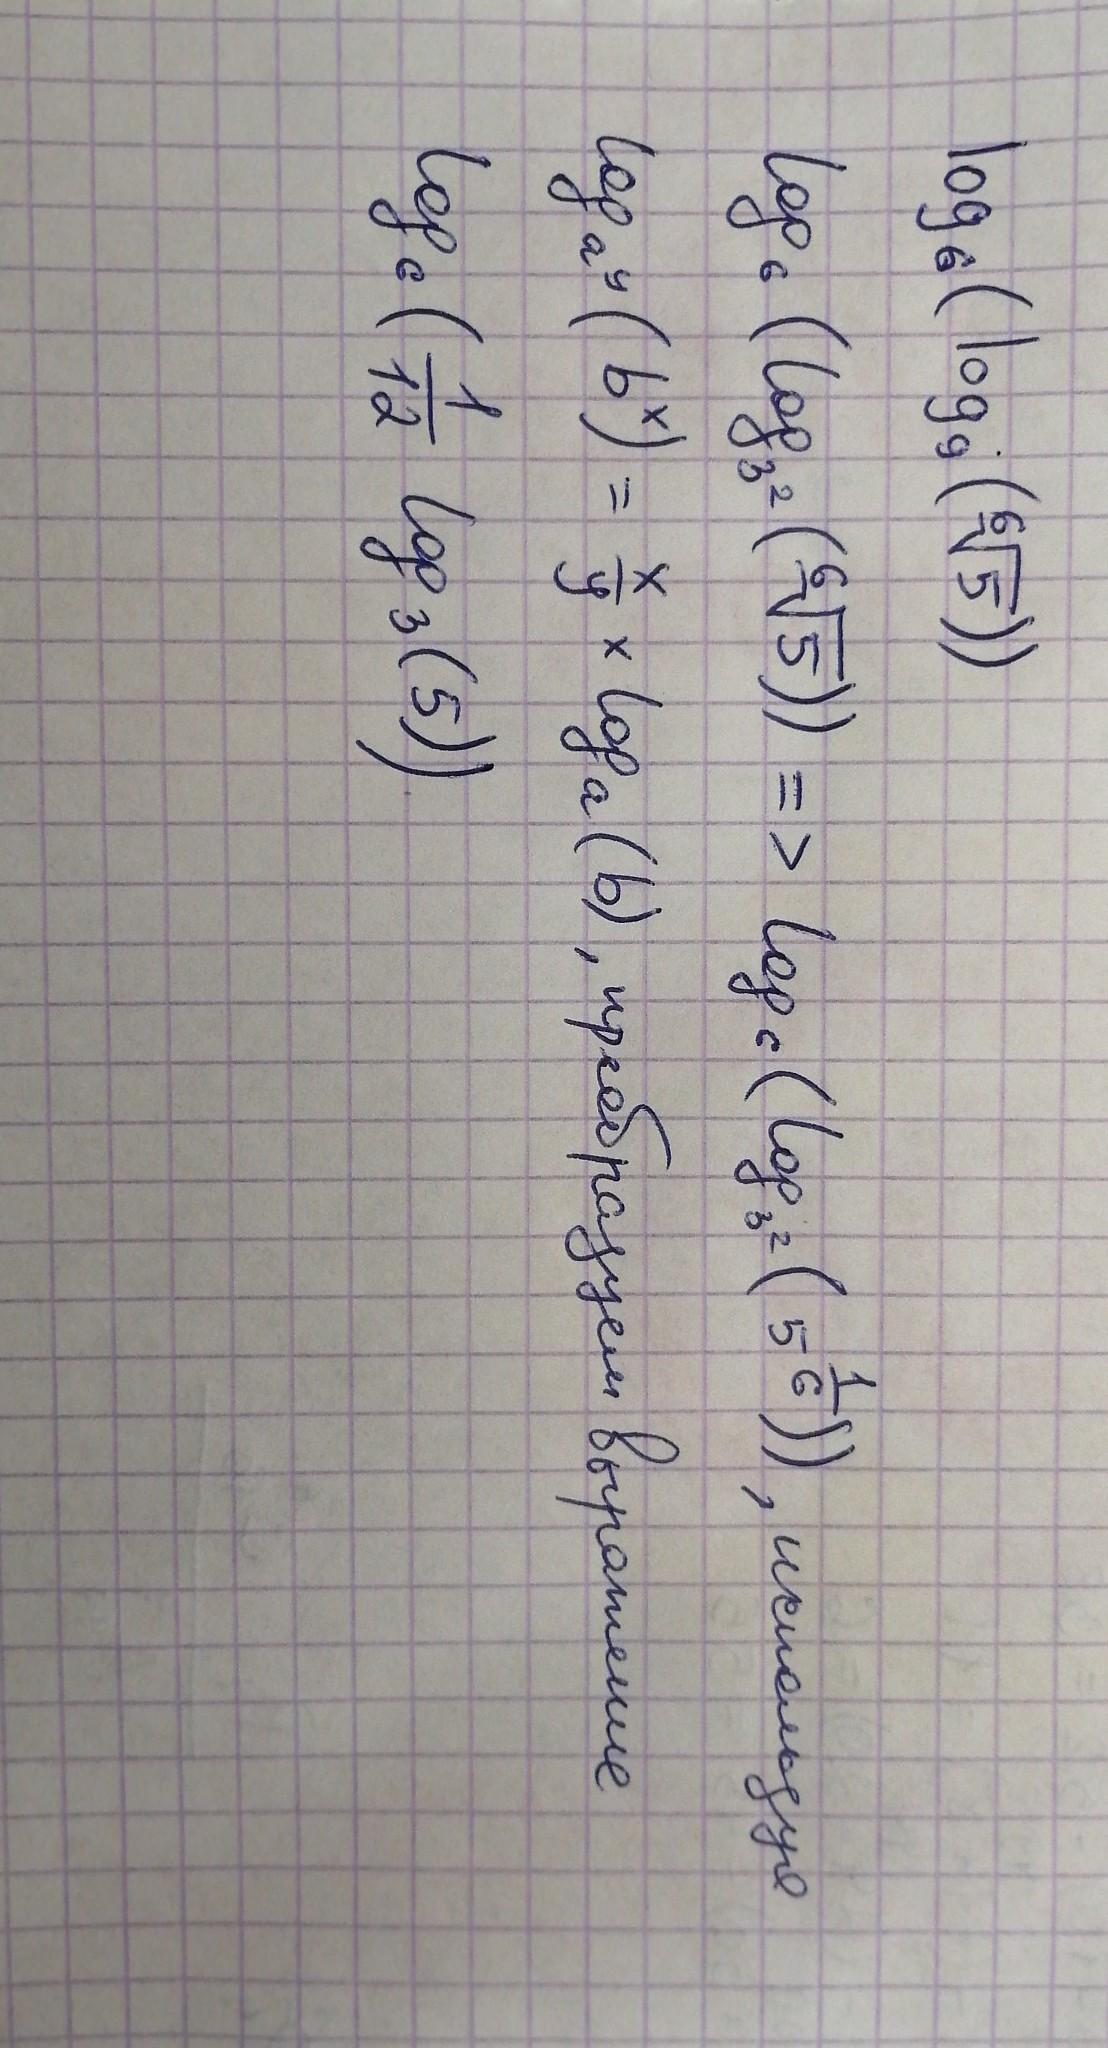 log₆(log₉(⁶√5))
log₆(log₃²(⁶√5)) => log₆(log₃²(5^(1/6))), используе
logₐʸ(bˣ) = x/y × logₐ(b), преобразуем выражение
log₆(1/12 log₃(5))